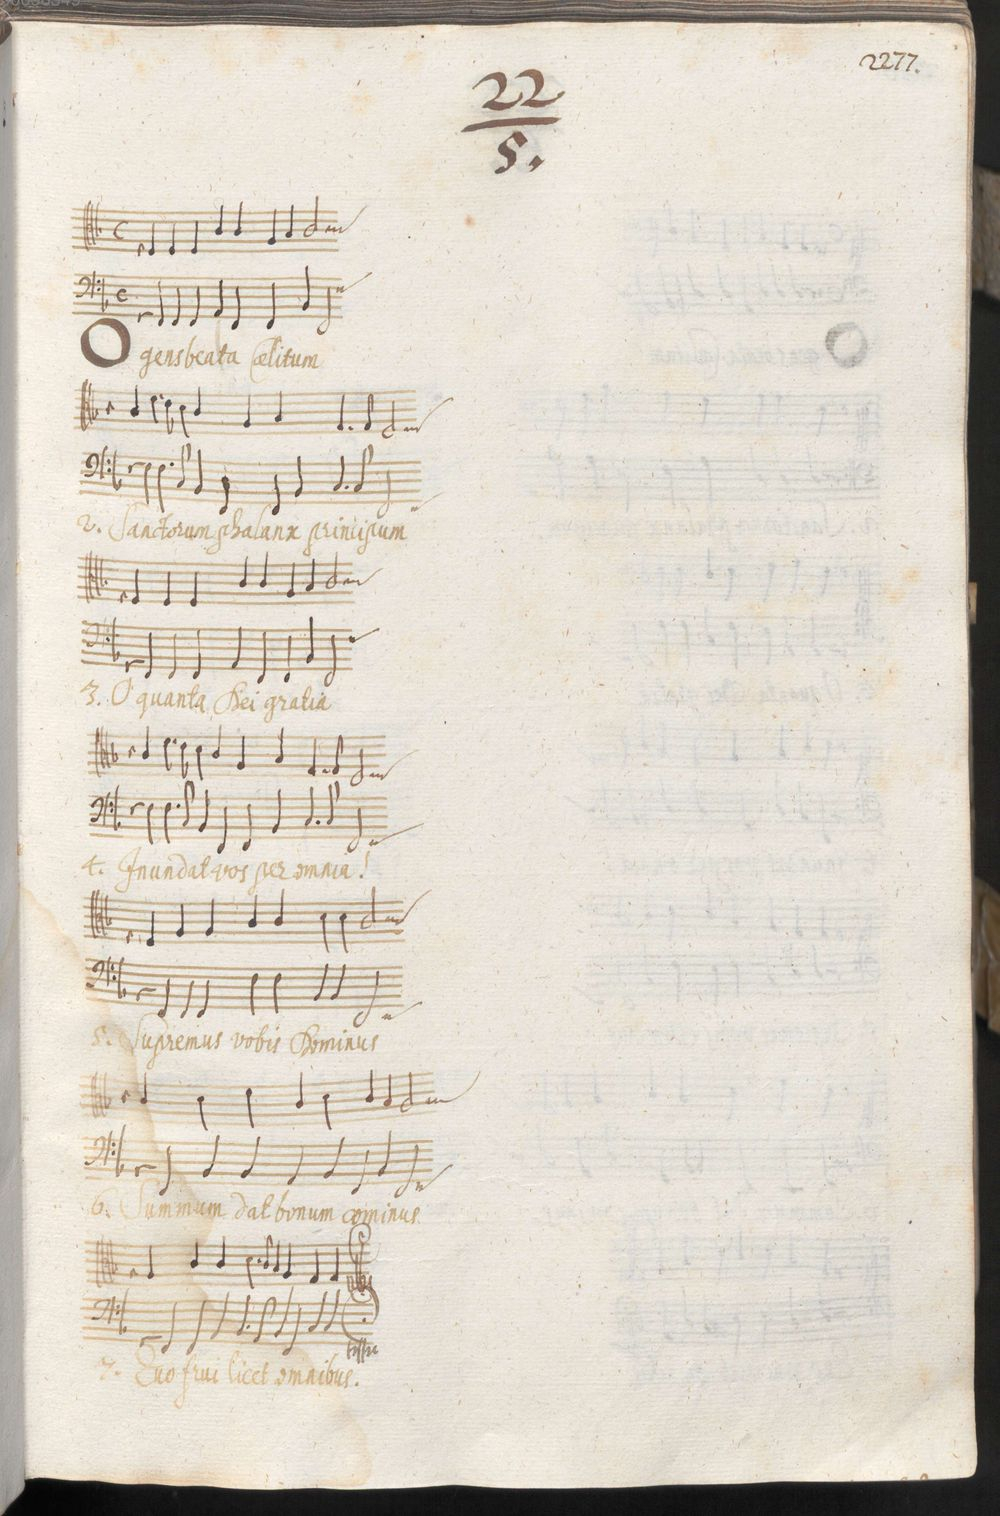 2277.
22
5.
O gens beata Cælitum
2. Sanctorum phalanx principum
3. O quanta Dei gratia
4. Inundat vos per omnia!
5. Supremus vobis Dominus
6. Summum dat bonum cominus
7. Quo frui licet omnibus.